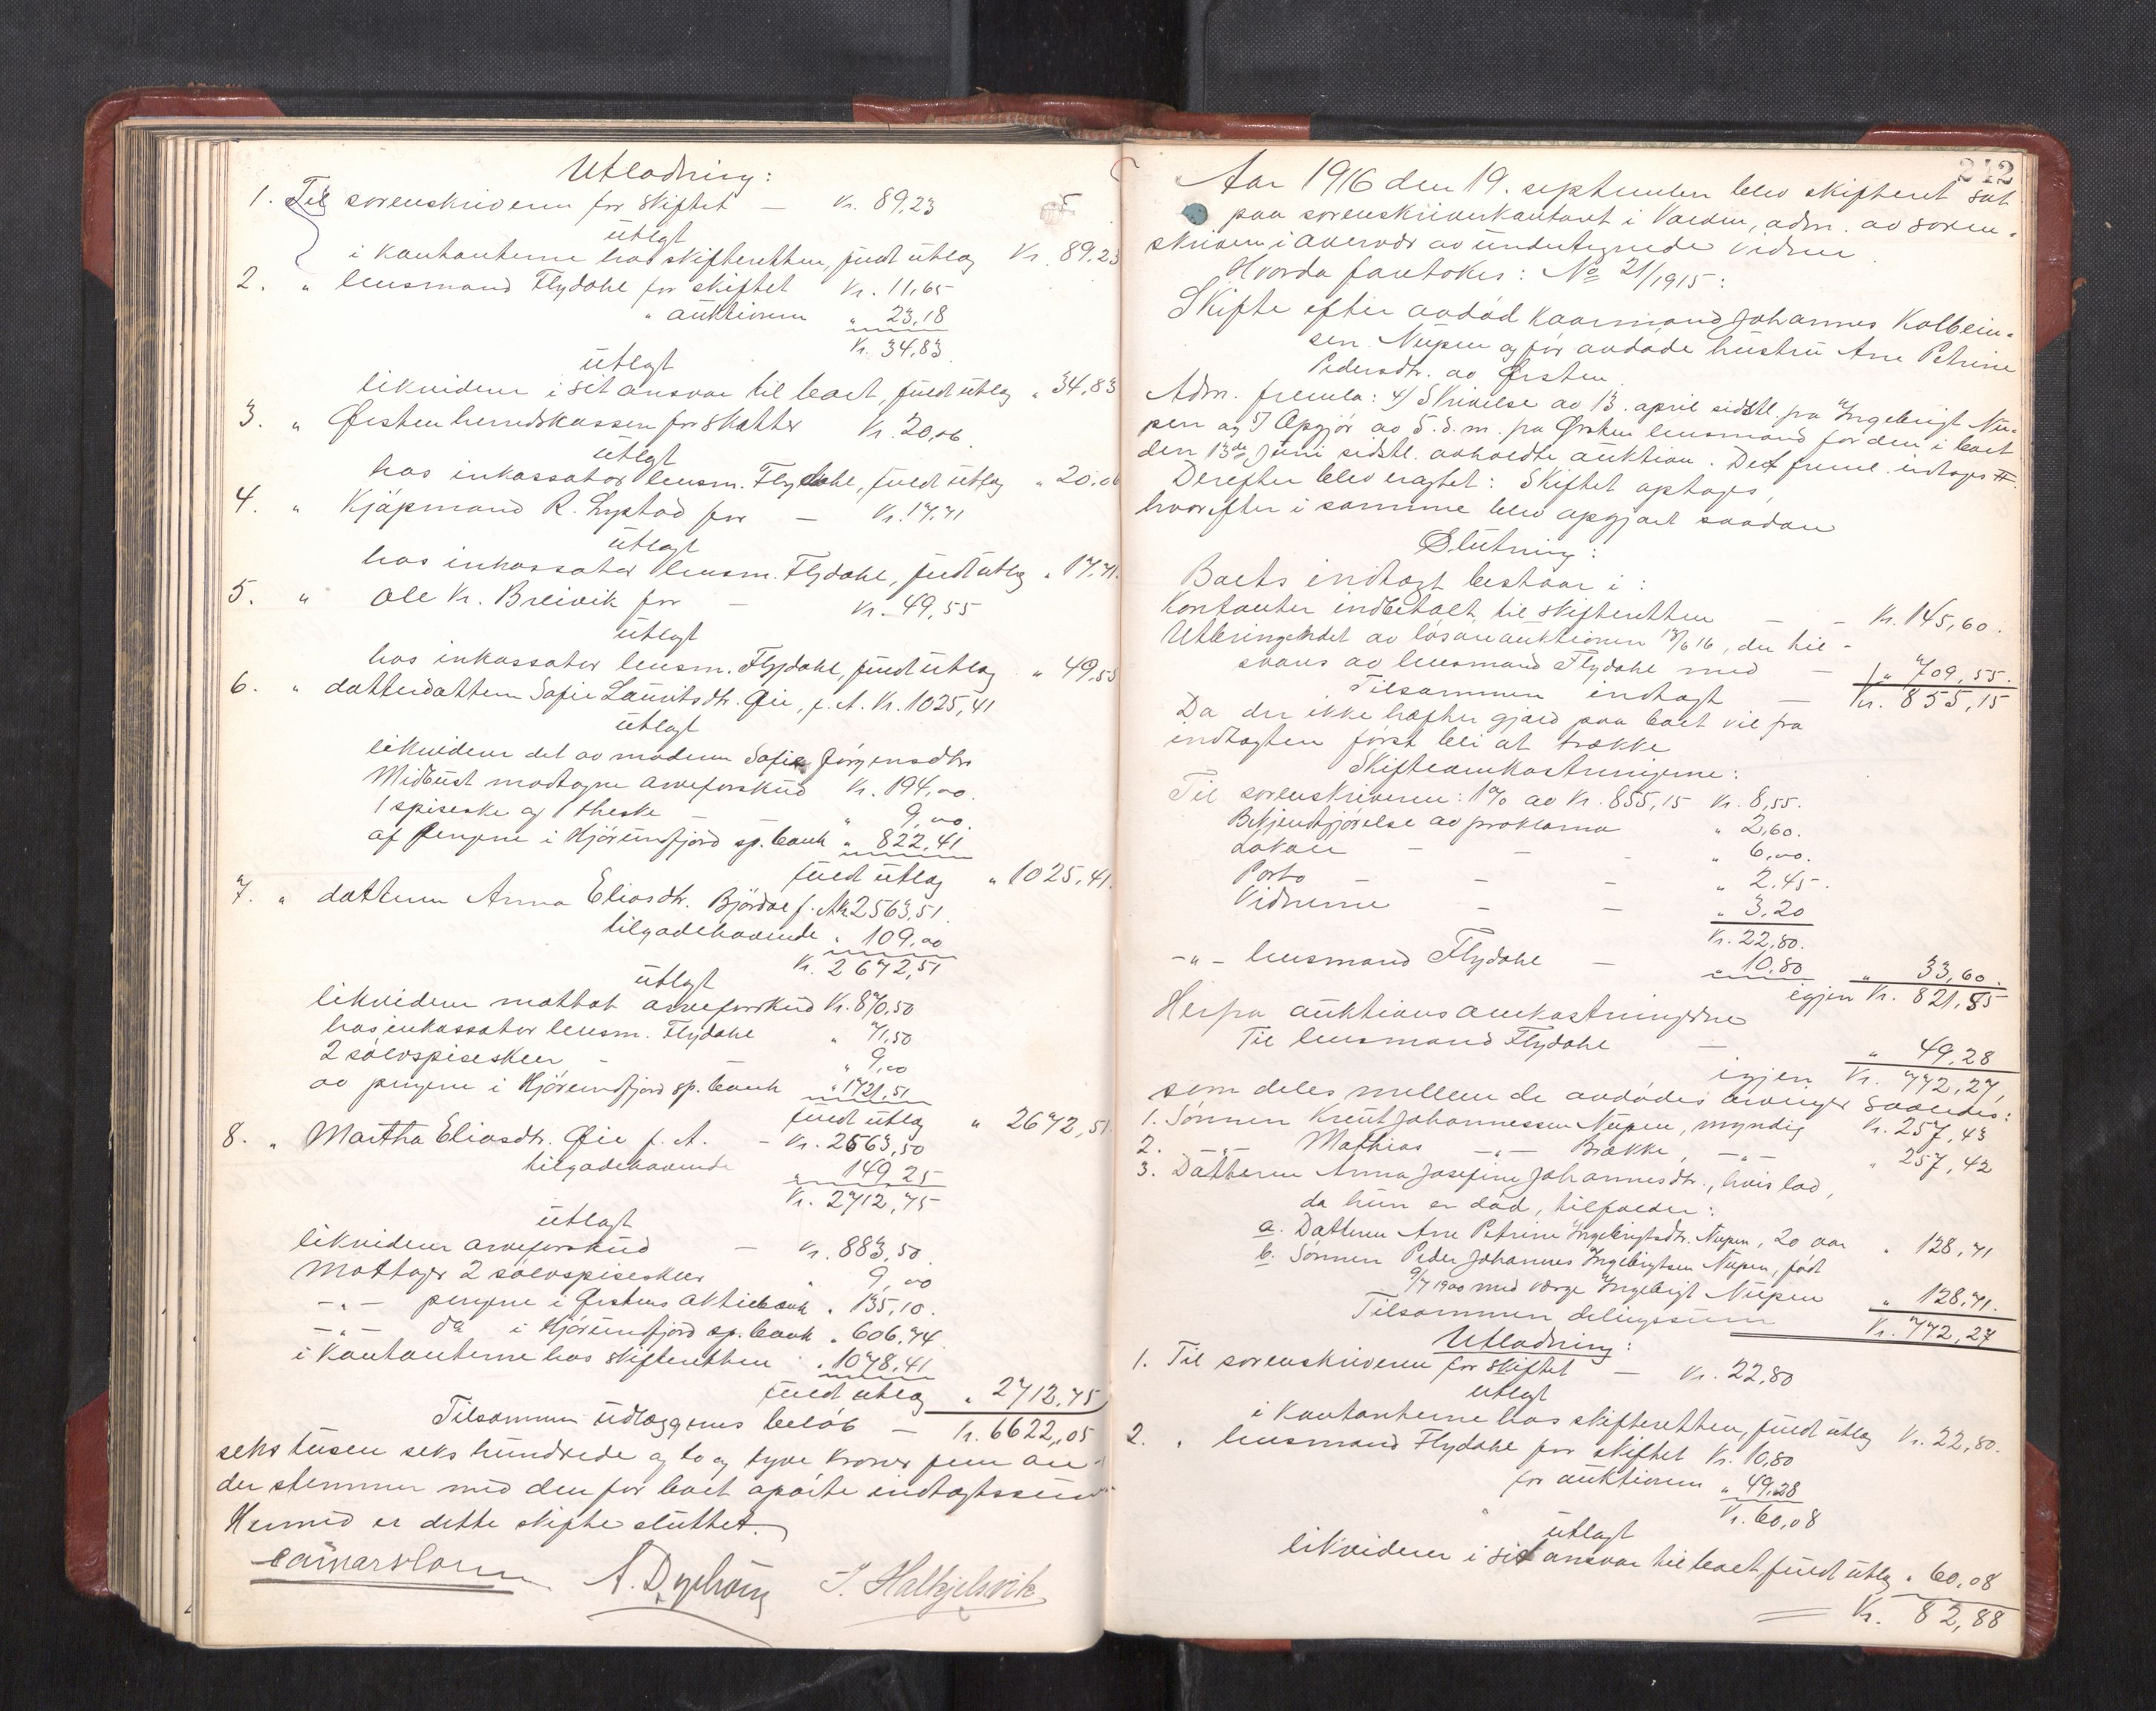 Utlodning:
1. Til sorenskriveren for skiftet — Kr. 89,23
utlagt
i kontanterne hos skifteretten, fuldt utlæg Kr. 89,23
2. " lensmand Flydahl for skiftet Kr. 11,65
" auktionen " 23,18
Kr. 34,83
utlagt
likviderer i sit ansvar til boet, fuldt utlæg " 34,83
3. " Ørsten herredskassen for skatter Kr. 20,06
utlagt
hos inkassator lensm. Flydahl, fuldt utlæg " 20,06
4. " Kjøpmand R. for — Kr. 17,71
utlagt
hos inkassator lensm. Flydahl, fuldt utlæg " 17,71.
5. " Ole Kr. Breivik for — Kr. 49,55
utlagt
hos inkassator lensm. Flydahl, fuldt utlæg " 49,55
6. " datterdatteren Safie Lauritsdtr. Øie, f. A. Kr. 1025,41
utlagt
likviderer det av moderen Safie Jørgensdtr.
Midtust modtagne arveforskud Kr. 194,00.
1 spiseske og 1 theske — " 9,00.
af pengene i Hjørundfjord sp. bank " 822,41
fuldt utlæg " 1025,41.
7. " datteren Anna Eliasdtr. Bjørdal f. A. Kr. 2563,51.
tilgodehavende " 109,00
Kr. 2672,51
utlagt
likviderer mottat arveforskud Kr. 870,50
hos inkassator lensm. Flydahl " 71,50
2 sølvspiseskeer — " 9,00
av pengene i Hjørundfjord sp. bank " 1721,51
fuldt utlæg " 2672,51.
8. " Martha Eliasdtr. Øie f. A. — Kr. 2563,50
tilgodehavende " 149,25
Kr. 2712,75
utlagt
likviderer arveforskud — Kr. 883,50
Mottager 2 sølvspiseskeer " 9,00
—"— pengene i Ørstens Aktiebank " 135,10.
—"— do i Hjørundfjord sp. bank " 606,74
i kontanterne hos skifteretten " 1078,41
fuldt utlæg " 2712,75
Tilsammen utlæggenes beløb — Kr. 6622,05
seks tusen seks hundrede og to og tyve kroner fem øre
der stemmer med den for boet opførte indtægtssum
Hermed er dette skifte sluttet.
242
Aar 1916 den 19. september blev skifteret sat
paa sorenskriverkontoret i Volden, adm. av soren-
skriveren i overvær av undertegnede vidner
Hvorda foretokes: No 21/1915:
Skifte efter avdød kaarmand Johannes Kolbein-
sen Nupen og før avdøde hustru Ane Petrine
Pedersdtr. av Ørsten
Adm. fremla: 4) Skrivelse av 13. april sidstl. fra Ingebrigt Nu-
pen og 5) Opgjør av 5. d. m. fra Ørsten lensmand for den i boet
den 13de juni sidstl. avholdte auktion. Det freml. indtages #.
Derefter blev eragtet: Skiftet optages,
hvorefter i samme blev opgjort saadan
Slutning:
Boets indtægt bestaar i:
Kontanter indbetalt til skifteretten — — Kr. 145,60.
Utbringendet av løsøreauktionen 13/6 16, der til-
svares av lensmand Flydahl med — " 709,55.
Tilsammen indtægt — Kr. 855,15
Da der ikke hæfter gjæld paa boet vil fra
indtægten først bli at trække
Skifteomkostningerne:
Til sorenskriveren: 1% av Kr. 855,15 Kr. 8,55.
Bekjendtgjørelse av proklama " 2,60.
Lokale — — — " 6,00.
Porto — — — " 2,45.
Vidnerne — — " 3,20
Kr. 22,80.
—"— lensmand Flydahl — " 10,80 " 33,60.
igjen Kr. 821,55
Herfra auktionsomkostningerne
Til lensmand Flydahl — " 49,28
igjen Kr. 772,27,
som deles mellem de avdødes arvinger saaledes:
1. Sønnen Knut Johannessen Nupen, myndig Kr. 257,43
2. —"— Mathias —"— Brække, —"— " 257,42
3. Datteren Anna Josefine Johannesdtr., hvis lod,
da hun er død, tilfalder:
a. Datteren Ane Petrine Ingebrigtsdtr. Nupen, 20 aar " 128,71
b. Sønnen Peder Johannes Ingebrigtsen Nupen, født
9/7 1900 med verge Ingebrigt Nupen " 128,71.
Tilsammen delingssum Kr. 772,27
Utlodning:
1. Til sorenskriveren for skiftet — Kr. 22,80
utlagt
i kontanterne hos skifteretten, fuldt utlæg Kr. 22,80.
2. " lensmand Flydahl for skiftet Kr. 10,80
for auktionen " 49,28
Kr. 60,08
utlagt
likviderer i sit ansvar til boet, fuldt utlæg " 60,08
Kr. 82,88